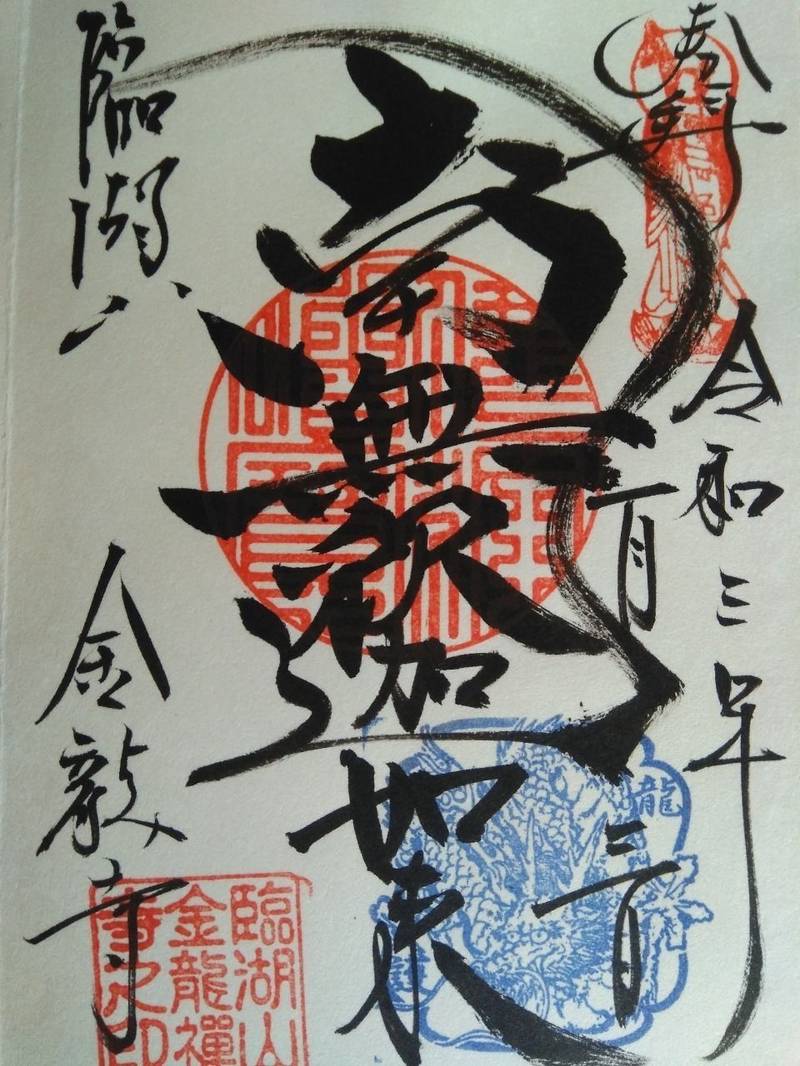 奉拝
令和三年
一月三日
南無釈迦如来
臨湖山
金龍寺
龍
臨湖山
金龍禪
寺之印